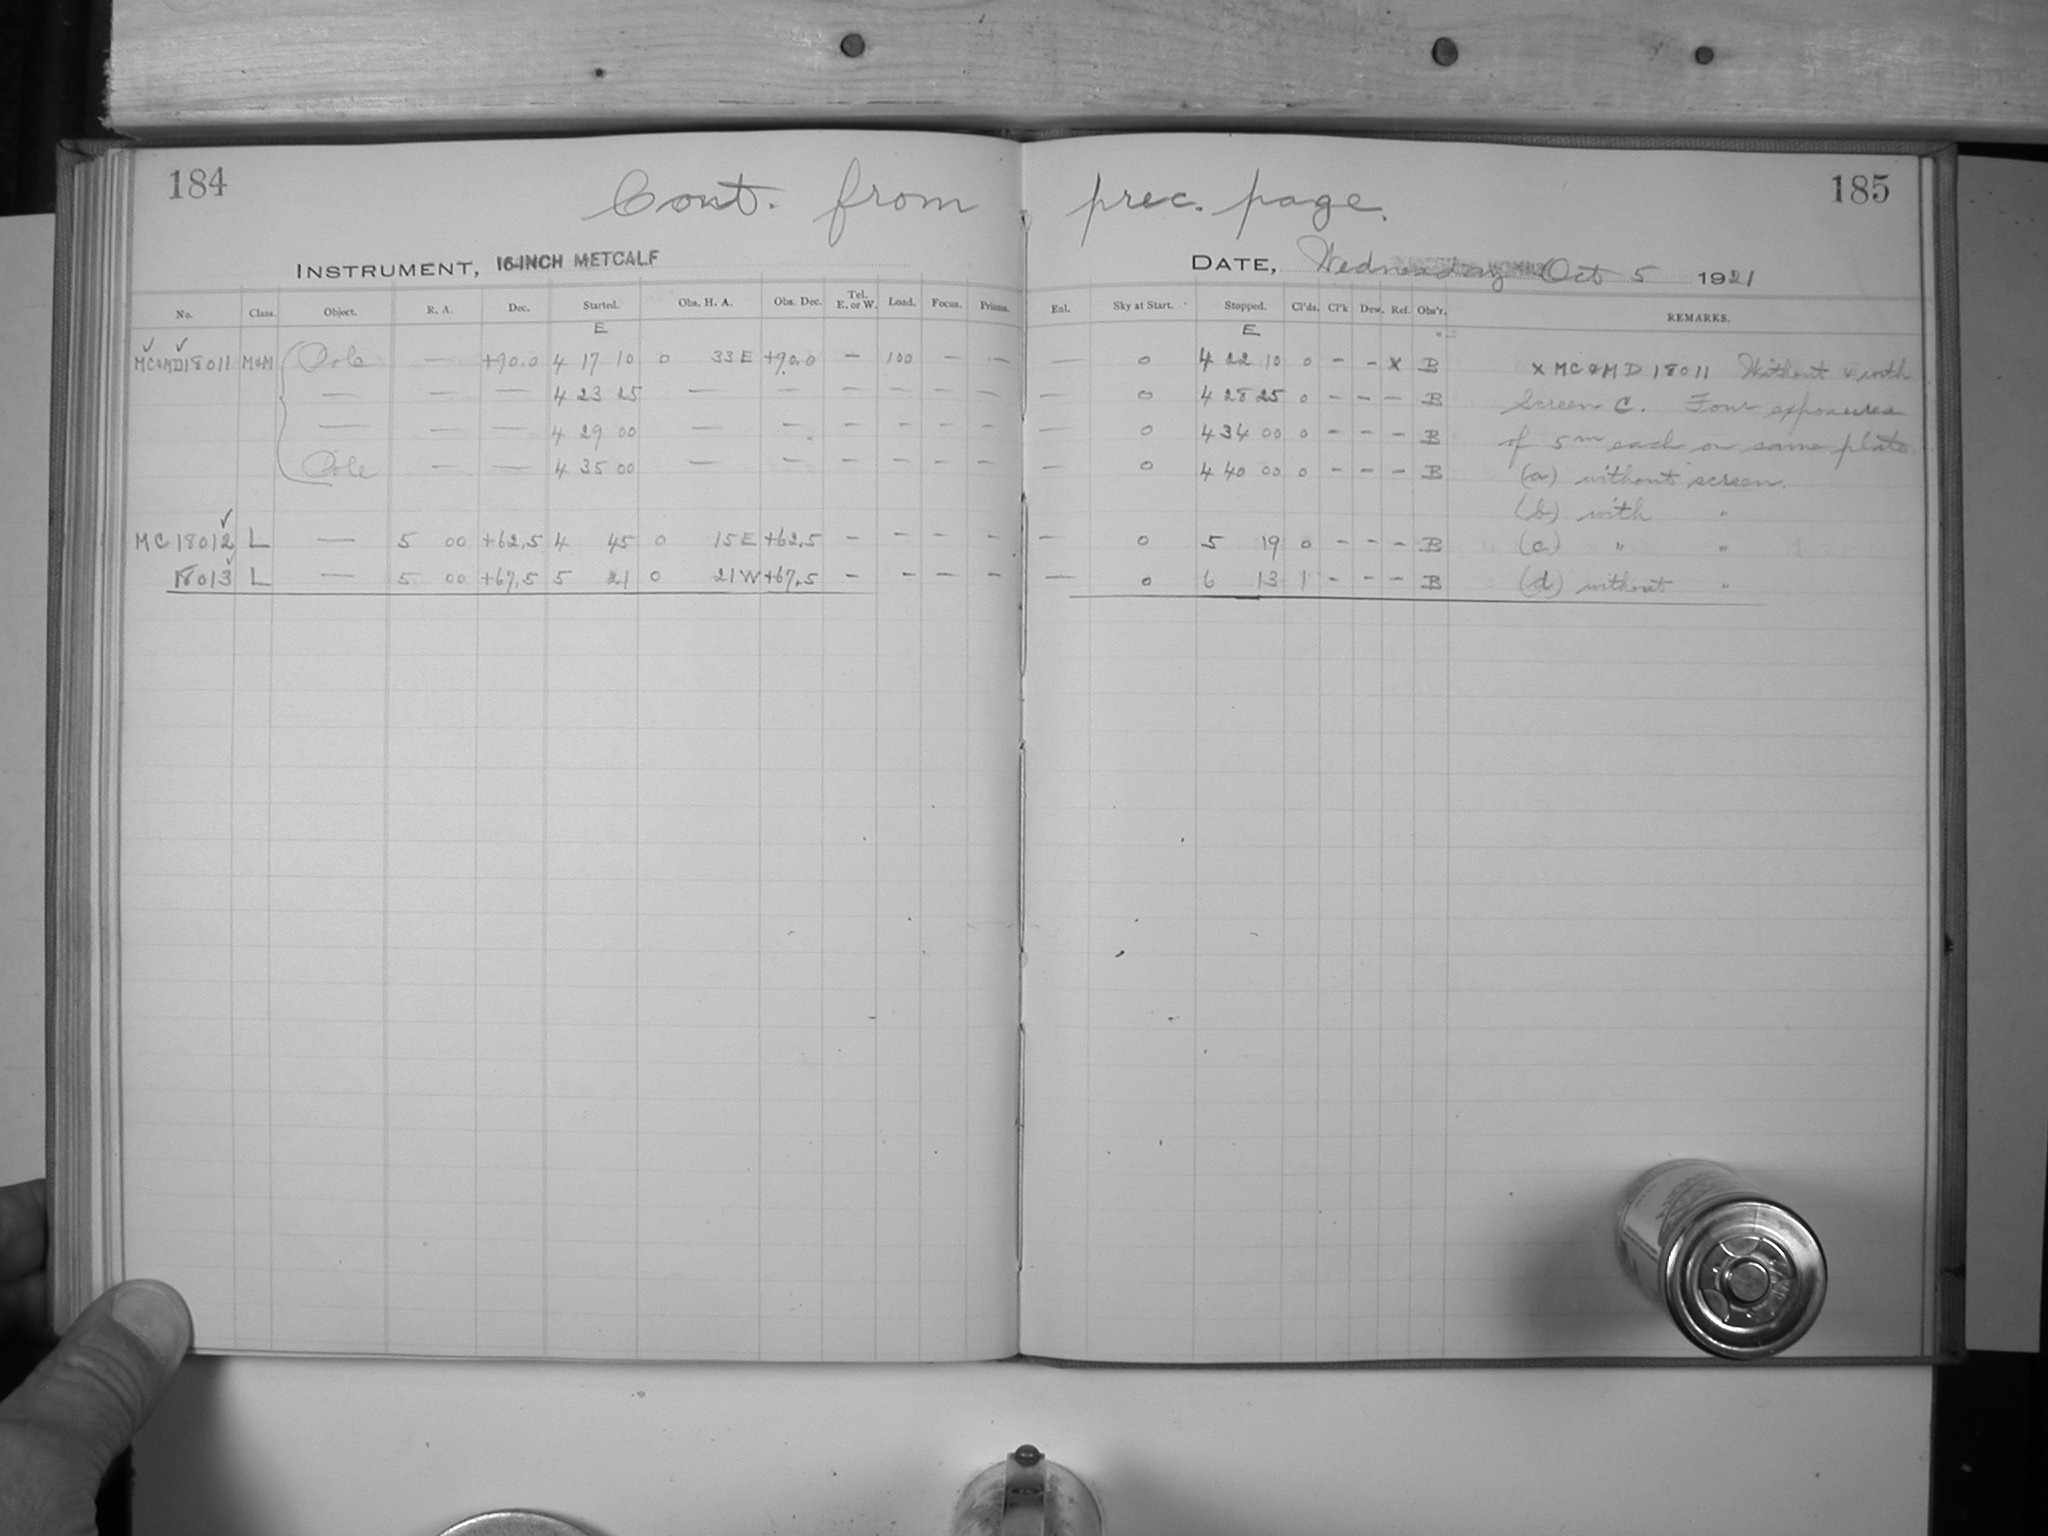 184
185
Cont. from prec. page.
INSTRUMENT, 16-INCH METCALF
DATE, Wednesday Oct 5 1921
No. Class. Object. R. A. Dec. Started. Obs. H. A. Obs. Dec. Tel. E. or W. Load. Focus. Prisms. Enl. Sky at Start. Stopped. Cl'ds. Cl'k Dew. Ref. Obs'r. REMARKS.
E E
MC&MD18011 M&M Pole — +90.0 4 17 10 0 33 E +90.0 — 100 — — — 0 4 22 10 0 - - X B X MC&MD 18011 Without & with
— — — 4 23 25 — — — — — — — 0 4 28 25 0 - - - B Screen C. Four exposures
— — — 4 29 00 — — — — — — — 0 4 34 00 0 - - - B of 5m each on same plate
Pole — — 4 35 00 — — — — — — — 0 4 40 00 0 - - - B (a) without screen.
(b) with "
MC 18012 L — 5 00 +62.5 4 45 0 15 E +62.5 — — — — — 0 5 19 0 - - - B (c) " "
18013 L — 5 00 +67.5 5 21 0 21 W +67.5 — — — — — 0 6 13 1 - - - B (d) without "